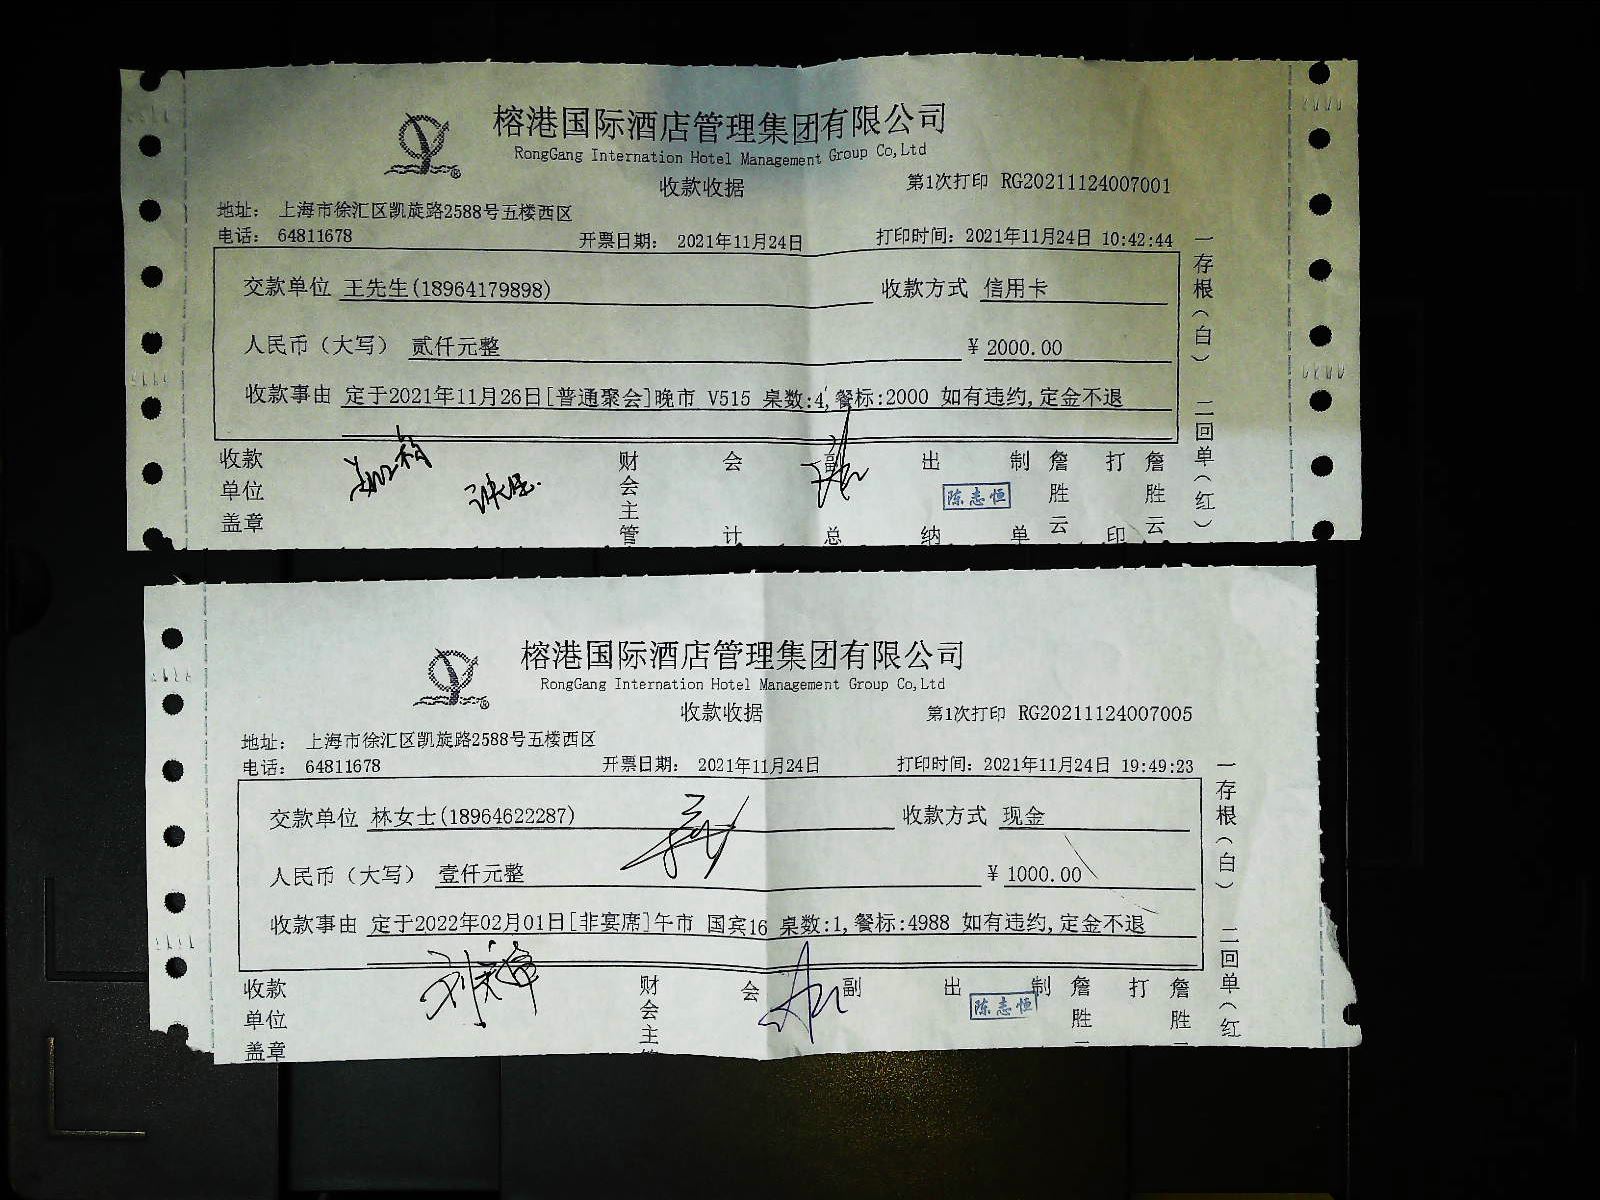 榕港国际酒店管理集团有限公司
RongGang Internation Hotel Management Group Co,Ltd
收款收据
第1次打印 RG20211124007001
地址： 上海市徐汇区凯旋路2588号五楼西区
电话： 64811678 开票日期： 2021年11月24日 打印时间：2021年11月24日 10:42:44
交款单位 王先生(18964179898) 收款方式 信用卡
人民币（大写） 贰仟元整 ¥ 2000.00
收款事由 定于2021年11月26日[普通聚会]晚市 V515 桌数:4,餐标:2000 如有违约,定金不退
收款单位盖章 财会主管 会计 副总 出纳 陈志恒 制单 詹胜云 打印 詹胜云
一存根（白） 二回单（红）
榕港国际酒店管理集团有限公司
RongGang Internation Hotel Management Group Co,Ltd
收款收据
第1次打印 RG20211124007005
地址： 上海市徐汇区凯旋路2588号五楼西区
电话： 64811678 开票日期： 2021年11月24日 打印时间：2021年11月24日 19:49:23
交款单位 林女士(18964622287) 收款方式 现金
人民币（大写） 壹仟元整 ¥ 1000.00
收款事由 定于2022年02月01日[非宴席]午市 国宾16 桌数:1,餐标:4988 如有违约,定金不退
收款单位盖章 财会主 会 副 出 陈志恒 制 詹胜 打 詹胜
一存根（白） 二回单（红